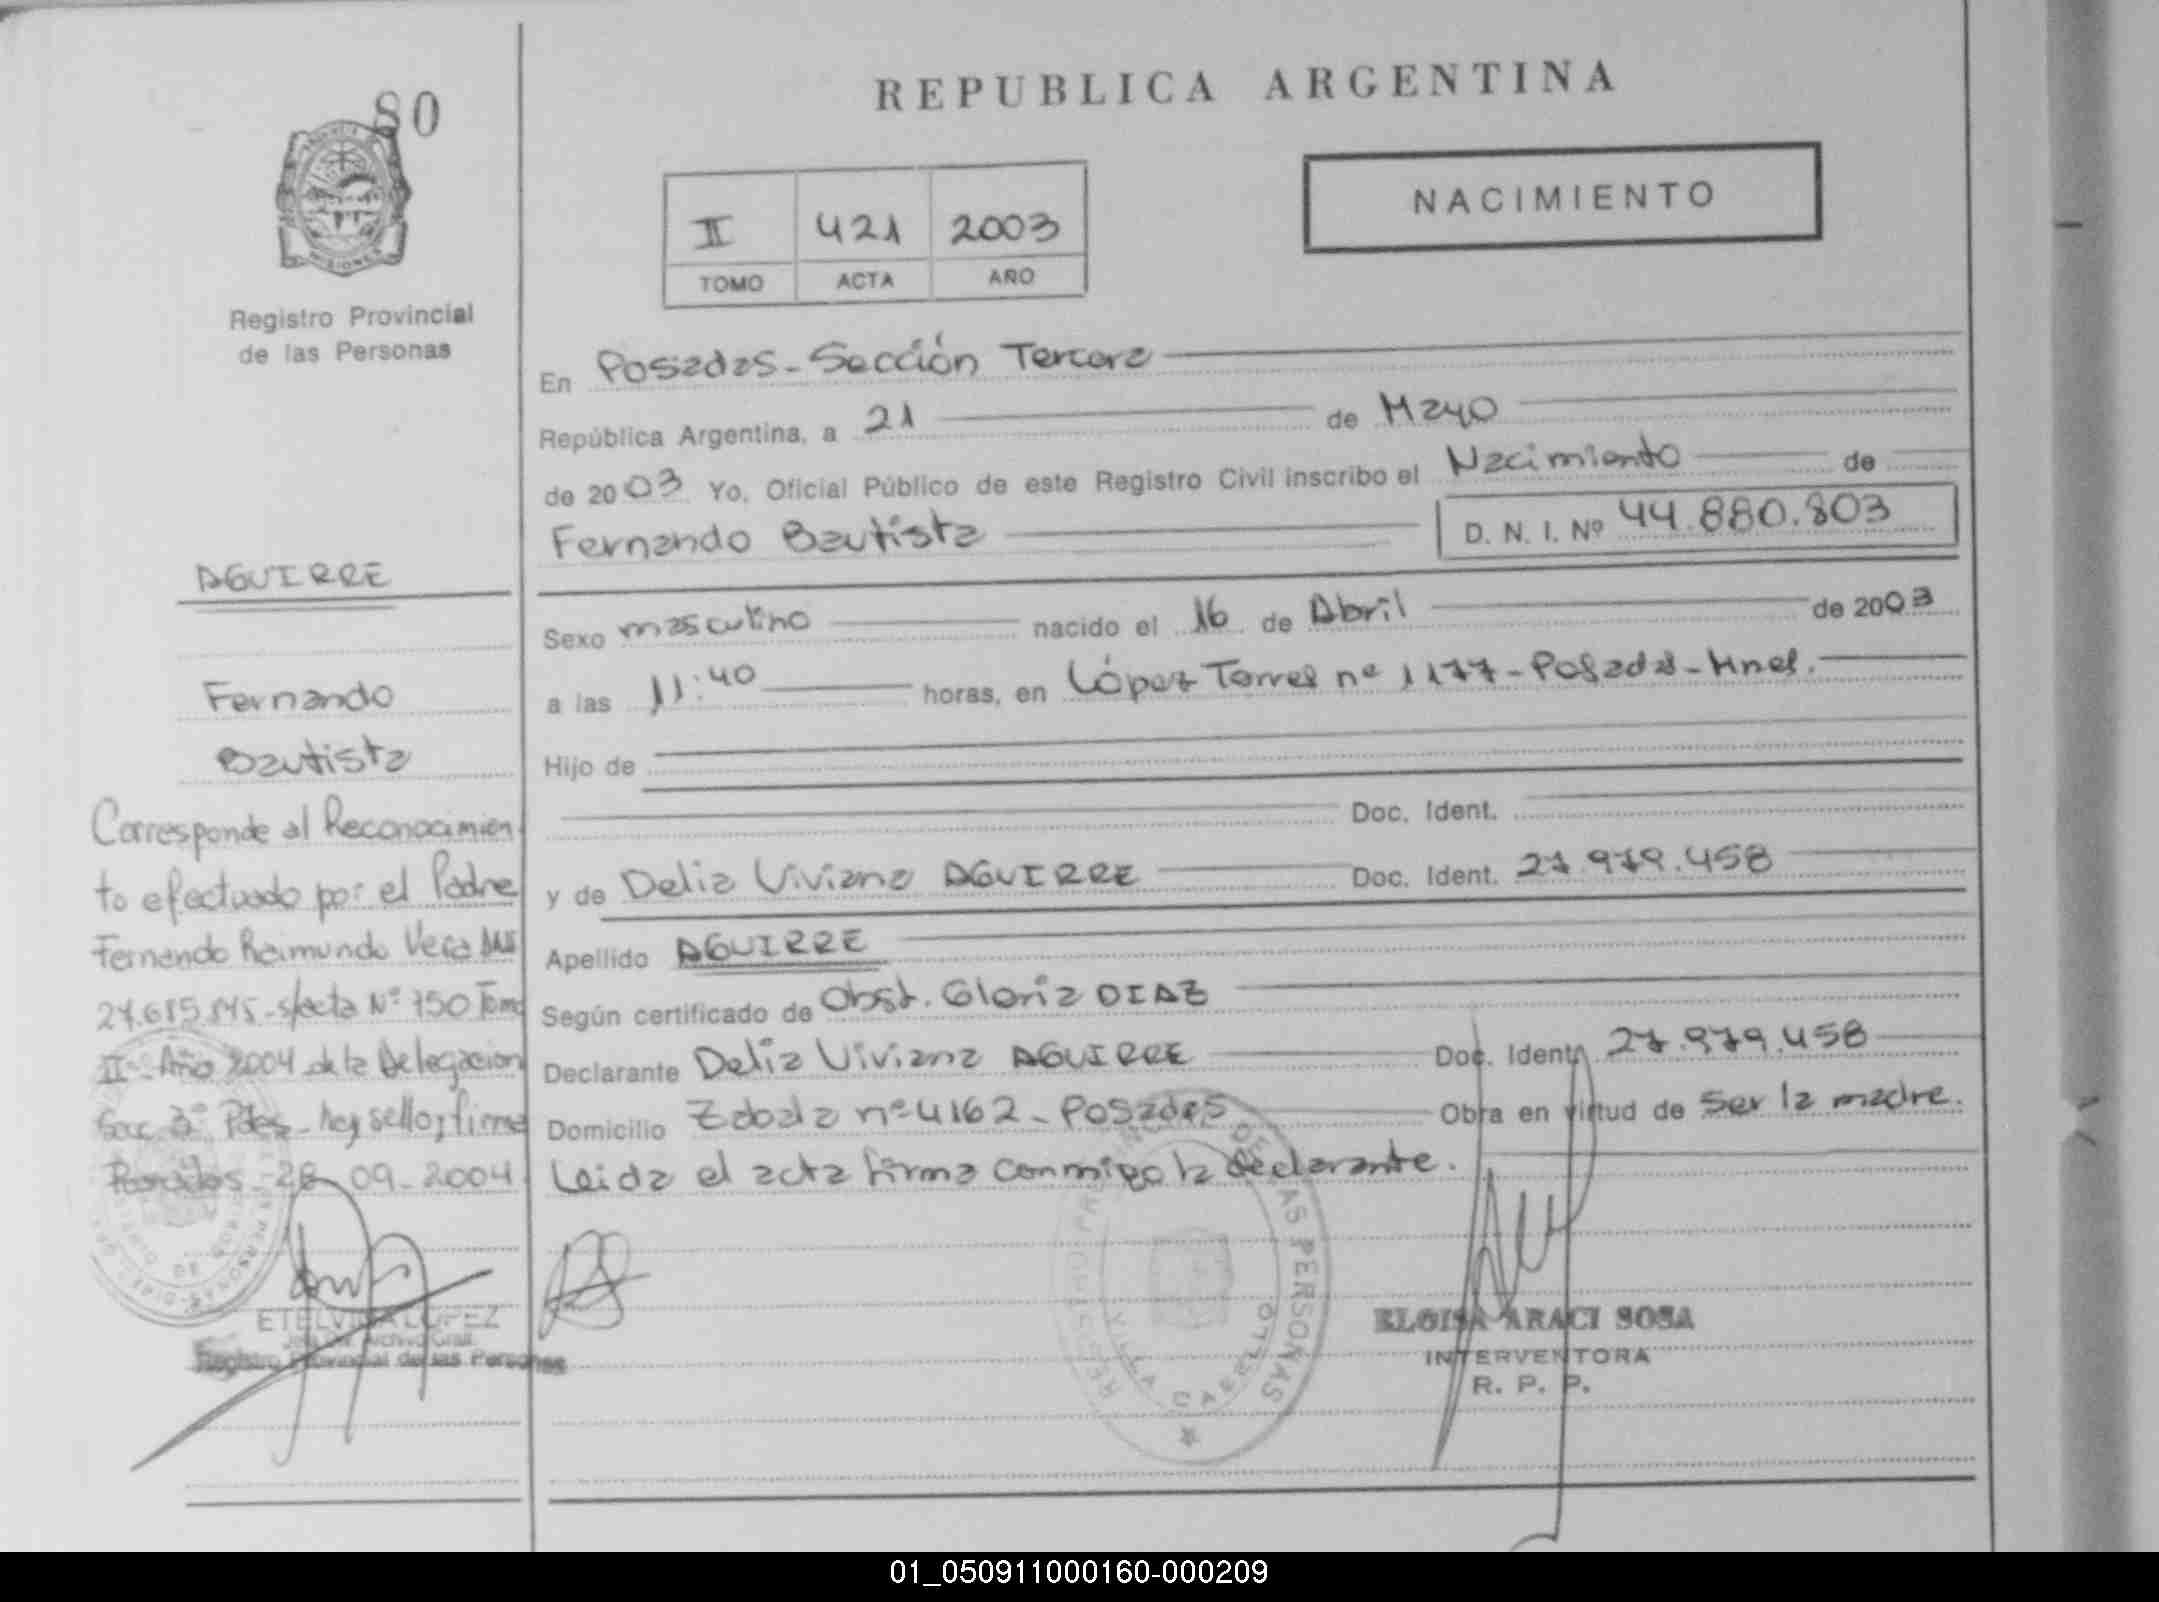 80
REPUBLICA ARGENTINA
NACIMIENTO
II 421 2003
TOMO ACTA AÑO
MISIONES
Registro Provincial
de las Personas
En Posadas - Sección Tercera
República Argentina, a 21 de Mayo
de 2003 Yo, Oficial Público de este Registro Civil inscribo el Nacimiento de
Fernando Bautista D. N. I. Nº 44.880.803
Sexo masculino nacido el 16 de Abril de 2003
a las 11:40 horas, en López Torres nº 1177 - Posadas - Mnes.
Hijo de
Doc. Ident.
y de Delia Viviana AGUIRRE Doc. Ident. 27.979.458
Apellido AGUIRRE
Según certificado de Obst. Gloria DIAZ
Declarante Delia Viviana AGUIRRE Doc. Ident. 27.979.458
Domicilio Zabala nº 4162 - Posadas Obra en virtud de ser la madre.
Leida el acta firma conmigo la declarante.
AGUIRRE
Fernando
Bautista
Corresponde al Reconocimien
to efectuado por el Padre
Fernando Raimundo Vera
s/acta Nº 150 Tomo
II - Año 2004 de la Delegacion
Sec. 3º Pdas - hay sello y firma
Posadas - 28 - 09 - 2004
ETELVINA LOPEZ
Registro Provincial de las Personas
REGISTRO DE LAS PERSONAS
VILLA CABELLO
ELOISA ARACI SOSA
INTERVENTORA
R. P. P.
01_050911000160-000209